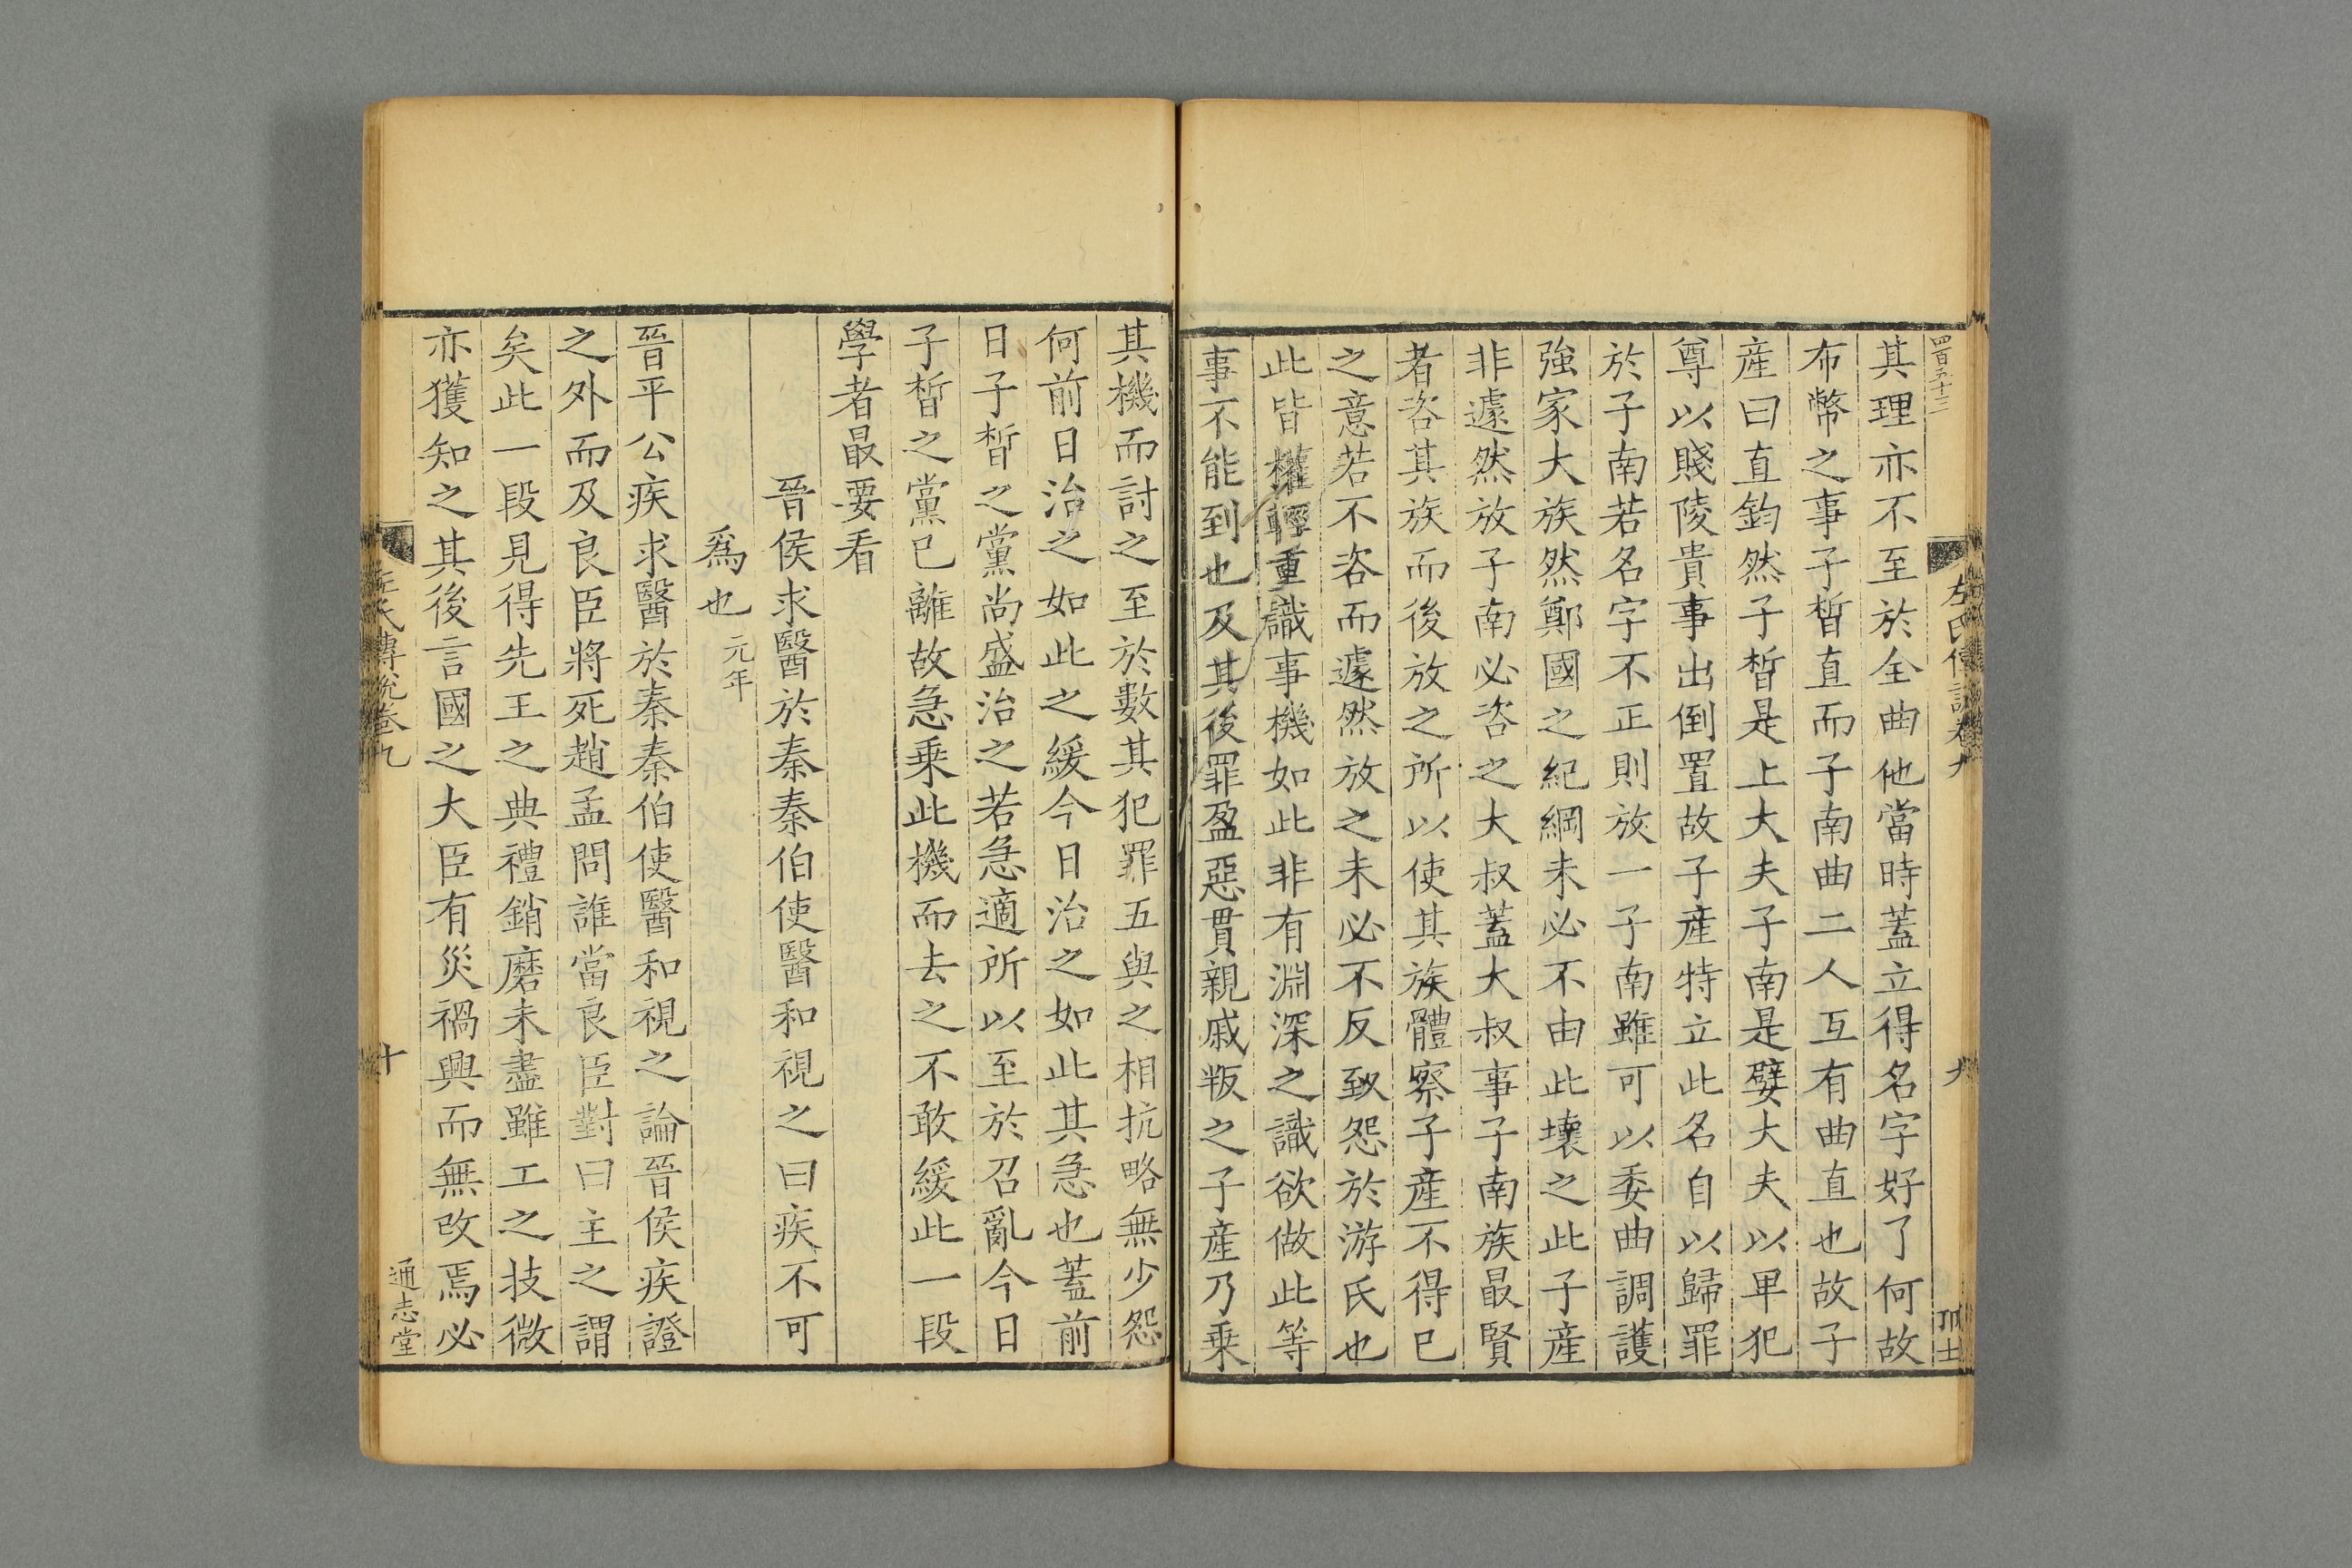 四百五十三
左氏傳說卷九
九
其理亦不至於全曲他當時蓋立得名字好了何故
布幣之事子晳直而子南曲二人互有曲直也故子
産曰直鈞然子晳是上大夫子南是嬖大夫以卑犯
尊以賤陵貴事出倒置故子産特立此名自以歸罪
於子南若名字不正則放一子南雖可以委曲調護
強家大族然鄭國之紀綱未必不由此壞之此子産
非遽然放子南必咨之大叔蓋大叔事子南族最賢
者咨其族而後放之所以使其族體察子產不得已
之意若不咨而遽然放之未必不反致怨於游氏也
此皆權輕重識事機如此非有淵深之識欲做此等
事不能到也及其後罪盈惡貫親戚叛之子産乃乗
其機而討之至於數其犯罪五與之相抗略無少怨
何前日治之如此之緩今日治之如此其急也蓋前
日子晳之黨尚盛治之若急適所以至於召亂今日
子晳之黨已離故急乗此機而去之不敢緩此一段
學者最要看
晉侯求醫於秦秦伯使醫和視之曰疾不可
爲也 元年
晉平公疾求醫於秦秦伯使醫和視之論晉侯疾證
之外而及良臣將死趙孟問誰當良臣對曰主之謂
矣此一段見得先王之典禮銷磨未盡雖工之技微
亦獲知之其後言國之大臣有災禍興而無改焉必
左氏傳說卷九
十
通志堂